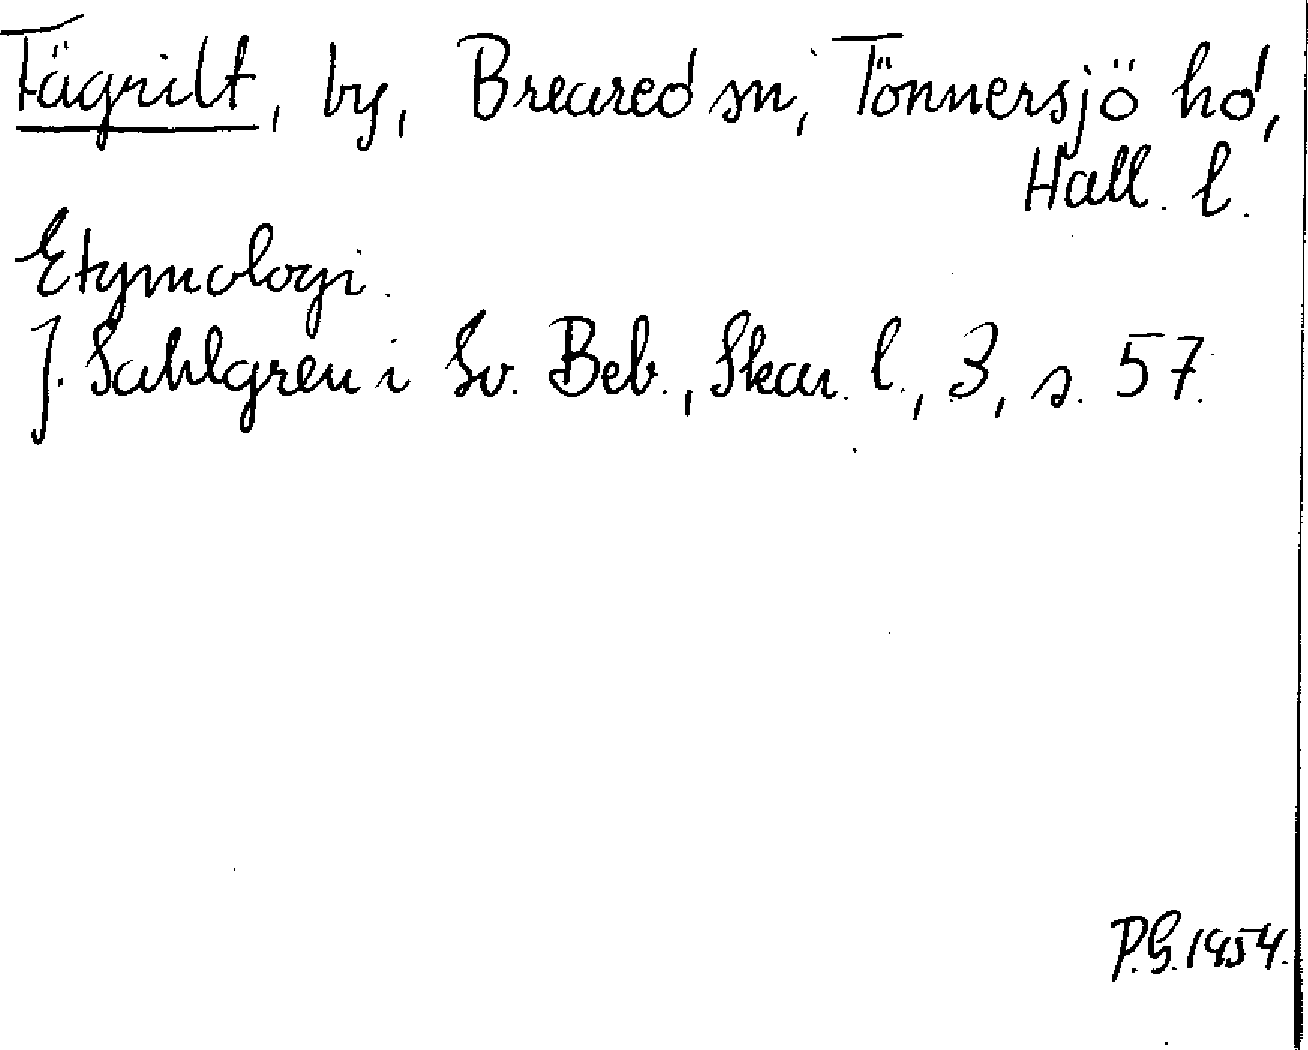 Fägrilt, by, Breared sn, Tönnersjö hd,
Hall. l.
Etymologi.
J. Sahlgren i Sv. Beb., Skar. l., 3, s. 57.
P.G. 1954.